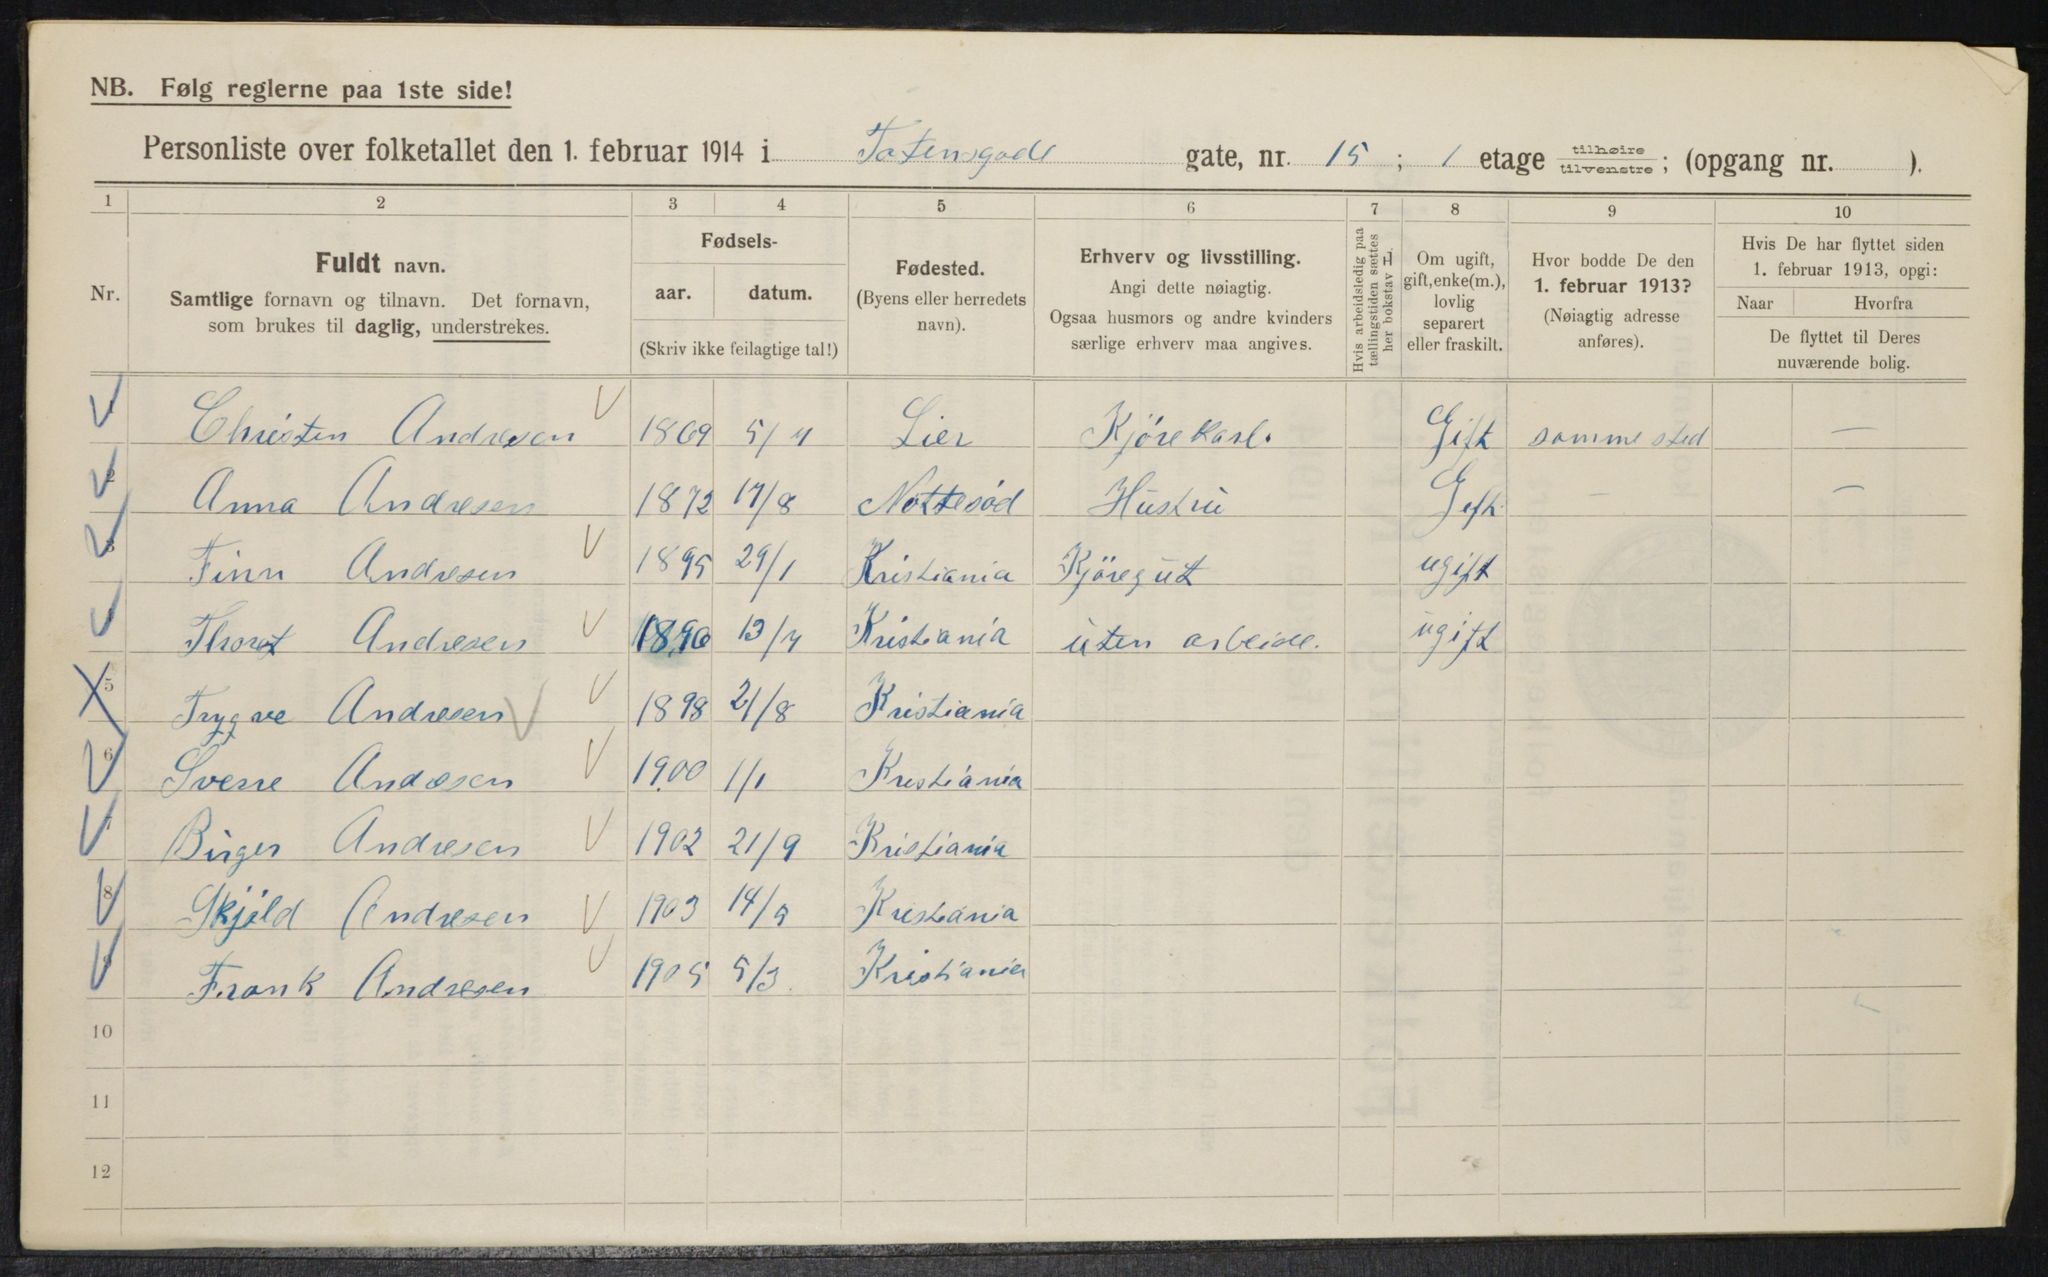 NB. Følg reglerne paa 1ste side!
Personliste over folketallet den 1. februar 1914 i Totensgade gate, nr. 15 ; 1 etage tilhøire/tilvenstre; (opgang nr. ).
1 2 3 4 5 6 7 8 9 10
Nr.
Fuldt navn.
Samtlige fornavn og tilnavn. Det fornavn,
som brukes til daglig, understrekes.
Fødsels-
aar. datum.
(Skriv ikke feilagtige tal!)
Fødested.
(Byens eller herredets
navn).
Erhverv og livsstilling.
Angi dette nøiagtig.
Ogsaa husmors og andre kvinders
særlige erhverv maa angives.
Hvis arbeidsledig paa
tællingstiden sættes
her bokstav L.
Om ugift,
gift, enke(m.),
lovlig
separert
eller fraskilt.
Hvor bodde De den
1. februar 1913?
(Nøiagtig adresse
anføres).
Hvis De har flyttet siden
1. februar 1913, opgi:
Naar Hvorfra
De flyttet til Deres
nuværende bolig.
1 Christen Andresen 1869 5/4 Lier Kjørekarl. Gift samme sted —
2 Anna Andresen 1872 17/8 Hustru Gift – —
3 Finn Andresen 1895 29/1 Kristiania Kjøregut ugift
4 Andresen 1896 13/4 Kristiania uten arbeide. ugift
5 Trygve Andresen 1898 21/8 Kristiania
6 Sverre Andresen 1900 1/1 Kristiania
7 Birger Andresen 1902 21/9 Kristiania
8 Skjold Andresen 1903 14/9 Kristiania
9 Frank Andresen 1905 5/3 Kristiania
10
11
12